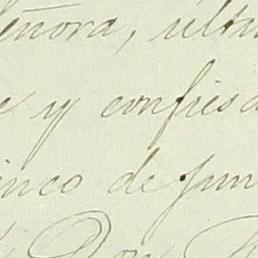 eñora, ultim
e y confiesa
inco de Jun
Don